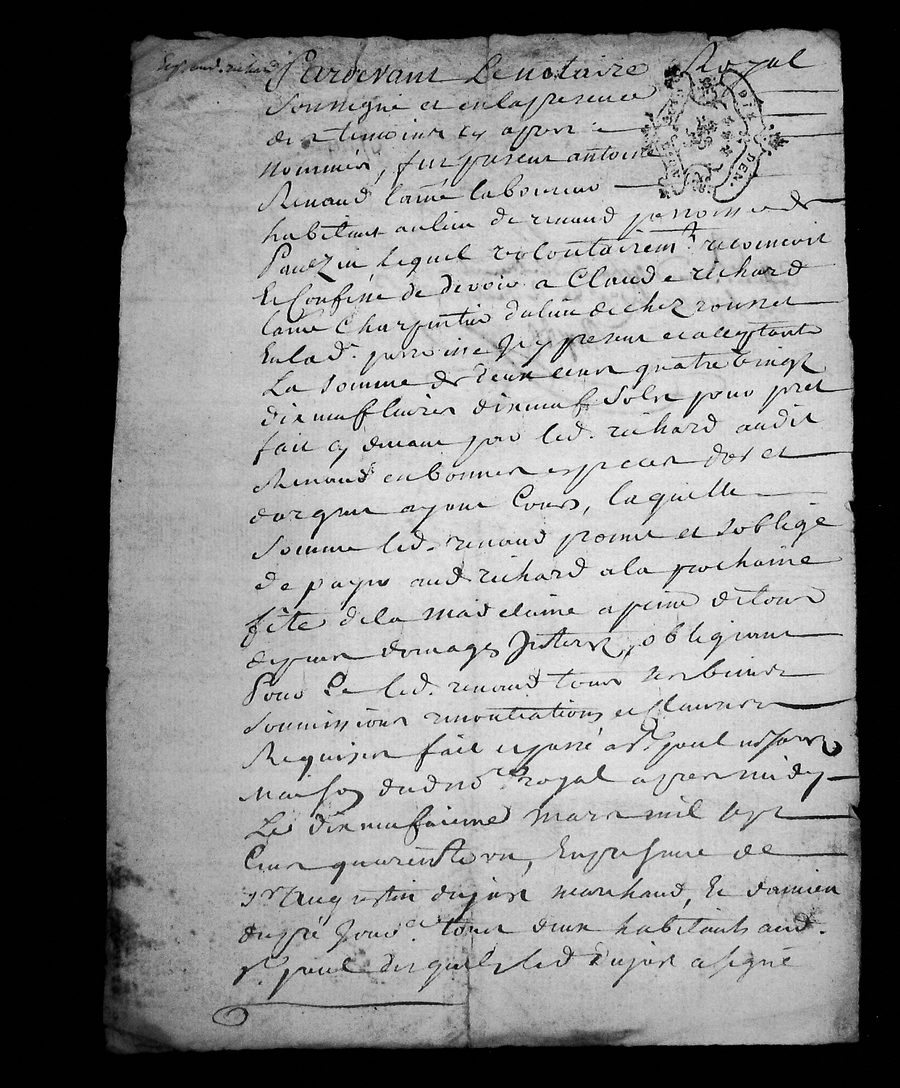 Pardevant Le notaire Royal
DIX DEN.
Soussigné et en la presence
des temoins cy apres
nommés, fut present antoine
Renaud lainé laboureur
habitant au lieu de renaud parroisse de
lequel volontairemt. reconnoit
Et Confesse de devoir a Claude richard
lainé Charpentier du lieu de chez rousset
En lad. parroisse Icy present et acceptant
La somme de deux cens quatre vingt
dix neuf livres dix neuf sols pour pret
fait cy devant par led. richard audit
Renaud en bonnes especes dor et
dargent ayant Cours, laquelle
somme led. renaud promet et soblige
de payer aud. richard a la prochaine
fête de la Madelaine a peine de tous
depens domages Interets, obligeant
Pour Ce led. renaud tous ses biens
soumissions renontiations et clauses
Requises fait et passé a st. paul
Maison dud. no.re royal apres midy
Le dix neufvieme mars mil sept
Cens quarente un, En presence de
sr. Augustin dujast marchand, Et damien
tous deux habitants aud.
st. paul desquels led. dujast a signé